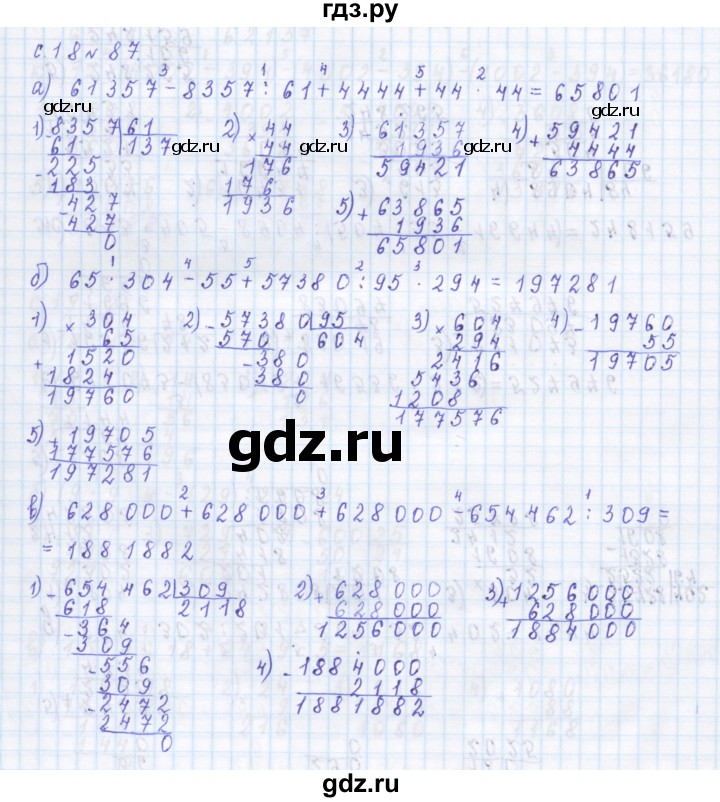 гдз.ру
с. 18 № 87.
3 1 4 5 2
а) 61357 - 8357 : 61 + 4444 + 44 · 44 = 65801
gdz.ru gdz.ru gdz.ru
1) - 8357 | 61 2) × 44 3) - 61357 4) + 59421
61 | 137 44 1936 4444
- 225 176 59421 63865
183 176
- 427 1936 5) + 63865
427 1936
0 65801
1 4 5 2 3
б) 65 · 304 - 55 + 57380 : 95 · 294 = 197281
1) × 304 2) - 57380 | 95 3) × 604 4) - 19760
65 570 | 604 294 55
+ 1520 - 380 2416 19705
1824 380 5436
19760 0 1208
177576
5) + 19705
177576
197281
gdz.ru
2 3 4 1
в) 628 000 + 628 000 + 628 000 - 654 462 : 309 =
= 1881882
1) - 654 462 | 309 2) + 628 000 3) + 1256000
618 | 2118 628000 628000
- 364 1256000 1884000
309
- 556 4) - 1884000
309 2118
- 2472 1881882
2472
0
gdz.ru